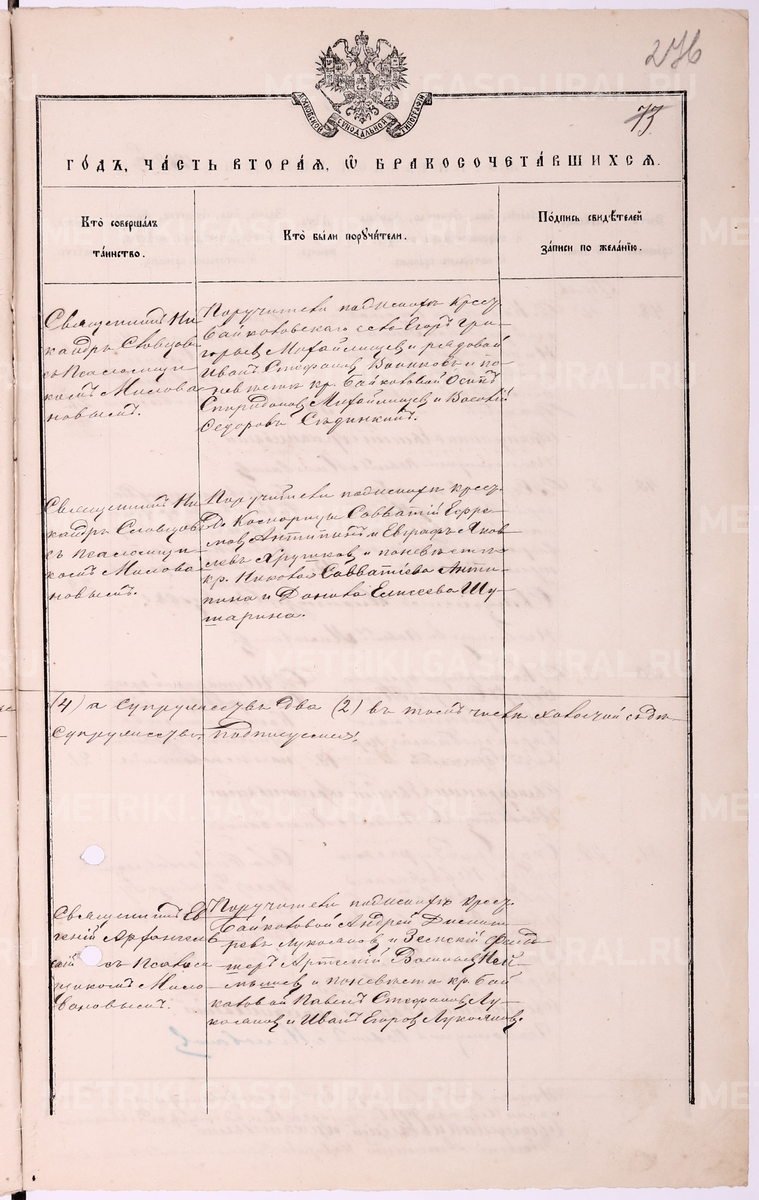 276
73
МОСКОВСКОЙ СѴНОДАЛЬНОЙ ТИПОГРАФІИ
ГО́ДЪ, ЧА́СТЬ ВТОРА́Я, Ѡ҆ БРАКОСОЧЕТА́ВШИХСЯ.
Кто̀ соверша́лъ
та́инство.
Кто̀ бы́ли поручи́тели.
По́дпись свидѣ́телей
за́писи по жела́нію.
Священникъ Ни-
кандръ Словцовъ
съ Псаломщи-
комъ Милова-
новымъ.
Поручители по женихѣ крест.
Байкаловскаго села Егоръ Гри-
горьевъ Михайлищевъ и рядовой
Иванъ Стефановъ Воинковъ и по
невѣстѣ кр. Байкаловой Осипъ
Спиридоновъ Михайлищевъ и Василій
Ѳедоровъ
Священникъ Ни-
кандръ Словцовъ
съ псаломщи-
комъ Милова-
новымъ.
Поручители по женихѣ крест.
Д. Савватій Ефре-
мовъ Антипинъ и Евграфъ Яков-
левъ Хрушковъ и по невѣстѣ
кр. Николай Савватіевъ Анти-
пинъ и Елисеевъ Шу-
шаринъ.
(4) а супружествъ два (2) въ томъ числѣ
супружествъ, подписуемся:
Священникъ Ев-
геній Архангель-
скій съ Псалом-
щикомъ Мило-
вановымъ.
Поручители по женихѣ крест.
Байкаловой Андрей Дмит-
ревъ Лукояновъ и Земскій Фельд-
шеръ Василіевъ
и по невѣстѣ кр. Бай-
каловой Павелъ Стефановъ Лу-
кояновъ и Иванъ Егоровъ Лукояновъ.
METRIKI.GASO-URAL.RU